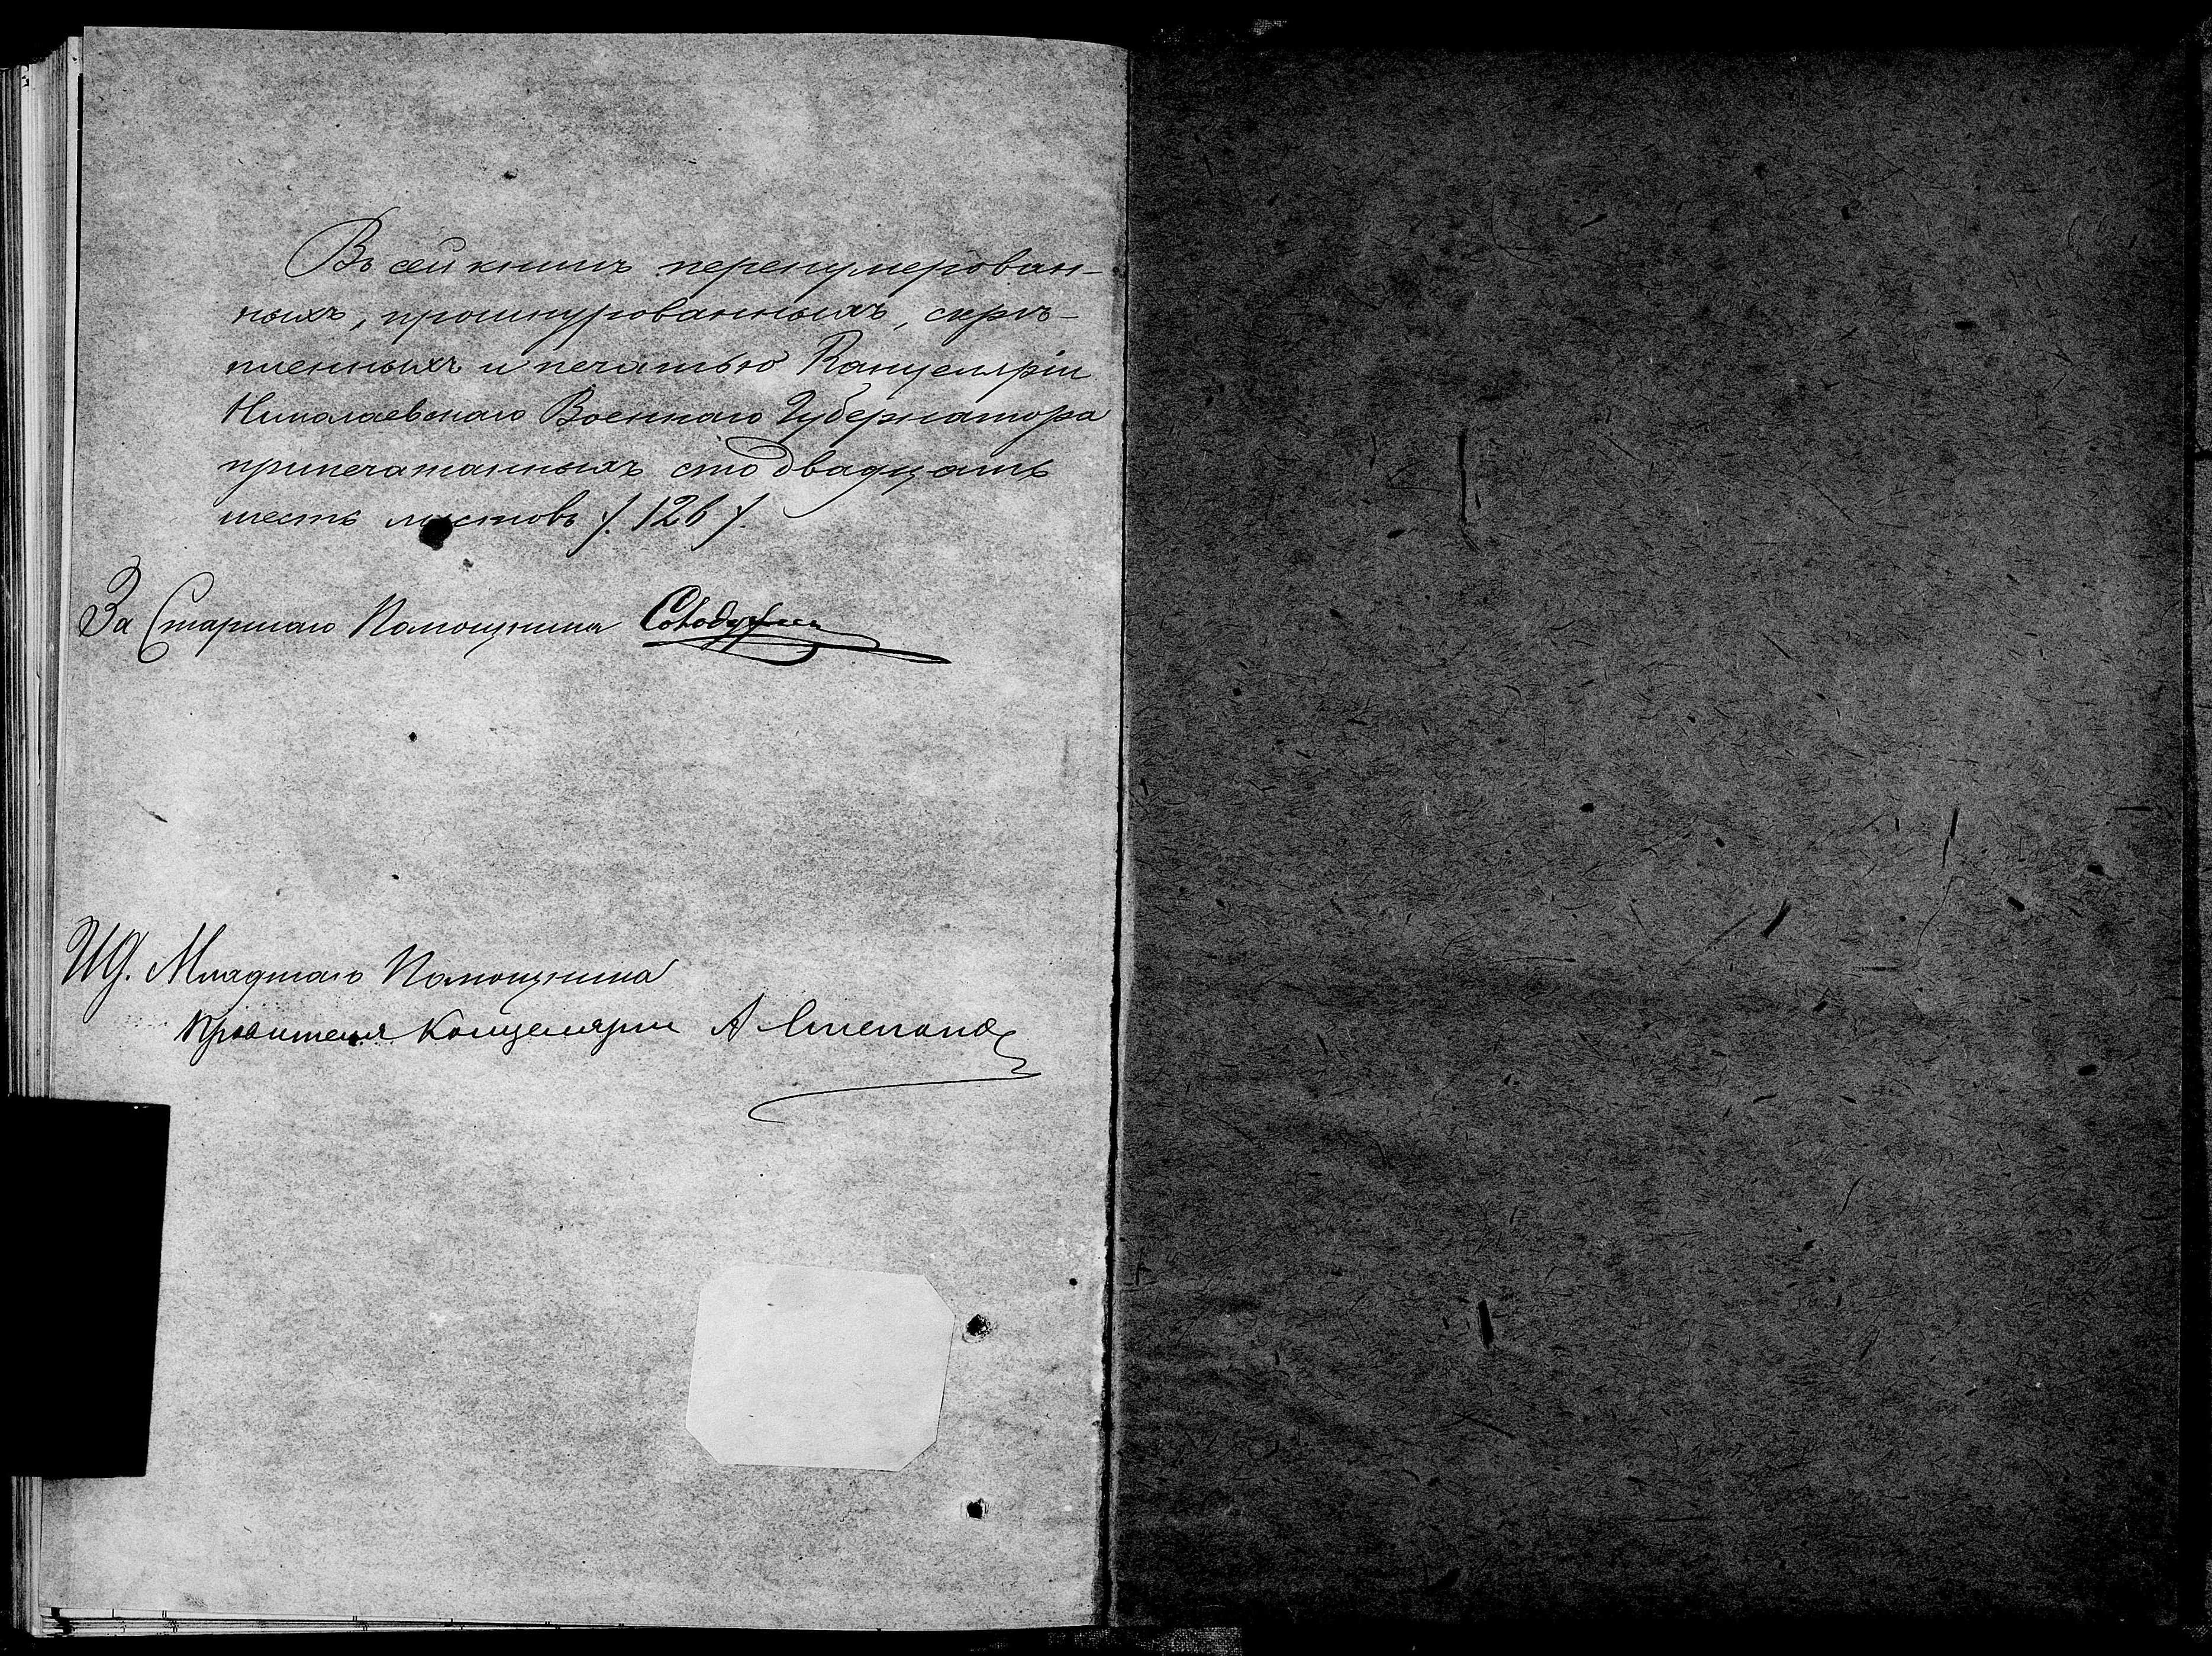 Въ сей книгѣ перенумерован-
ныхъ, прошнурованныхъ, скрѣ-
пленныхъ и печатью Канцеляріи
Николаевскаго Военнаго Губернатора
припечатанныхъ сто двадцать
шесть листовъ /. 126 /.
За Старшаго Помощника
И.д. Младшаго Помощника
Правителя Канцеляріи А